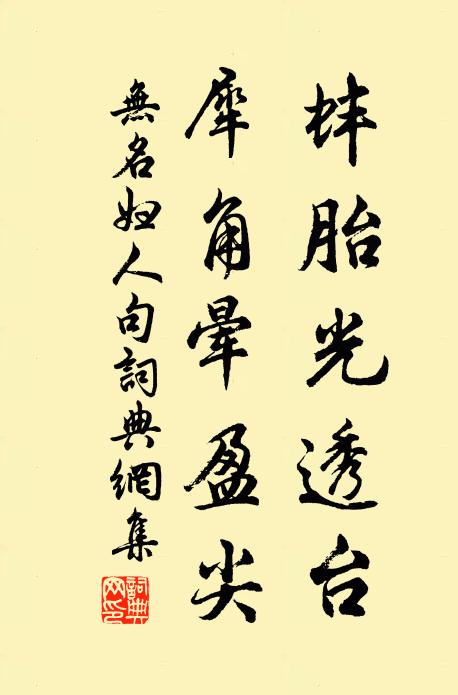 蚌胎光透台
犀角暈盈尖
無名妇人句詞典網集
詞典網印